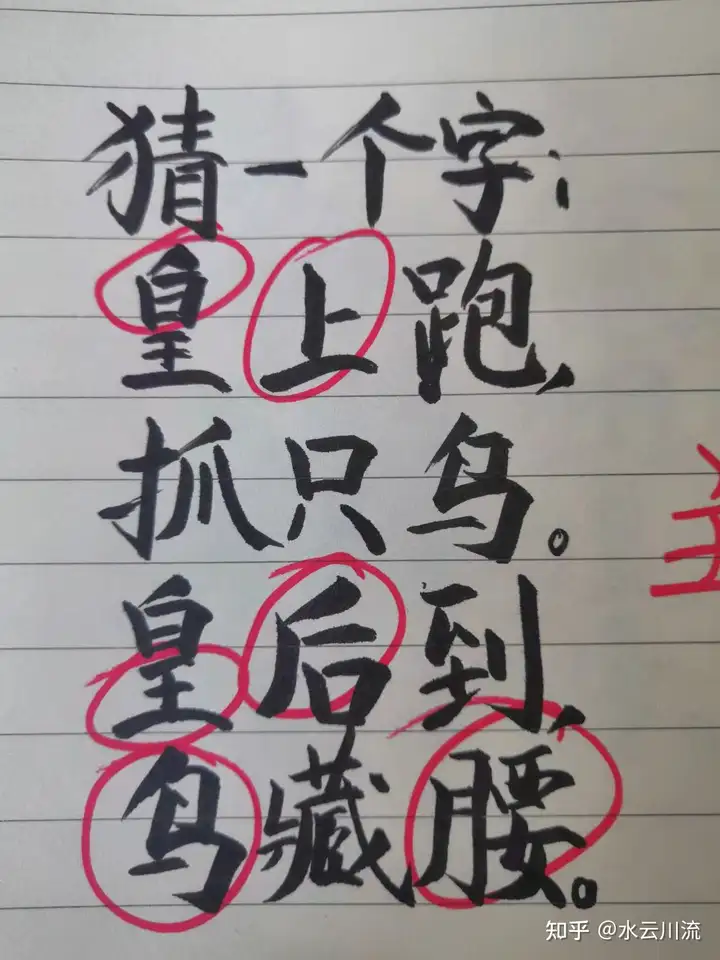 猜一个字:
皇上跑,
抓只鸟。
皇后到,
鸟藏腰。
知乎 @水云川流